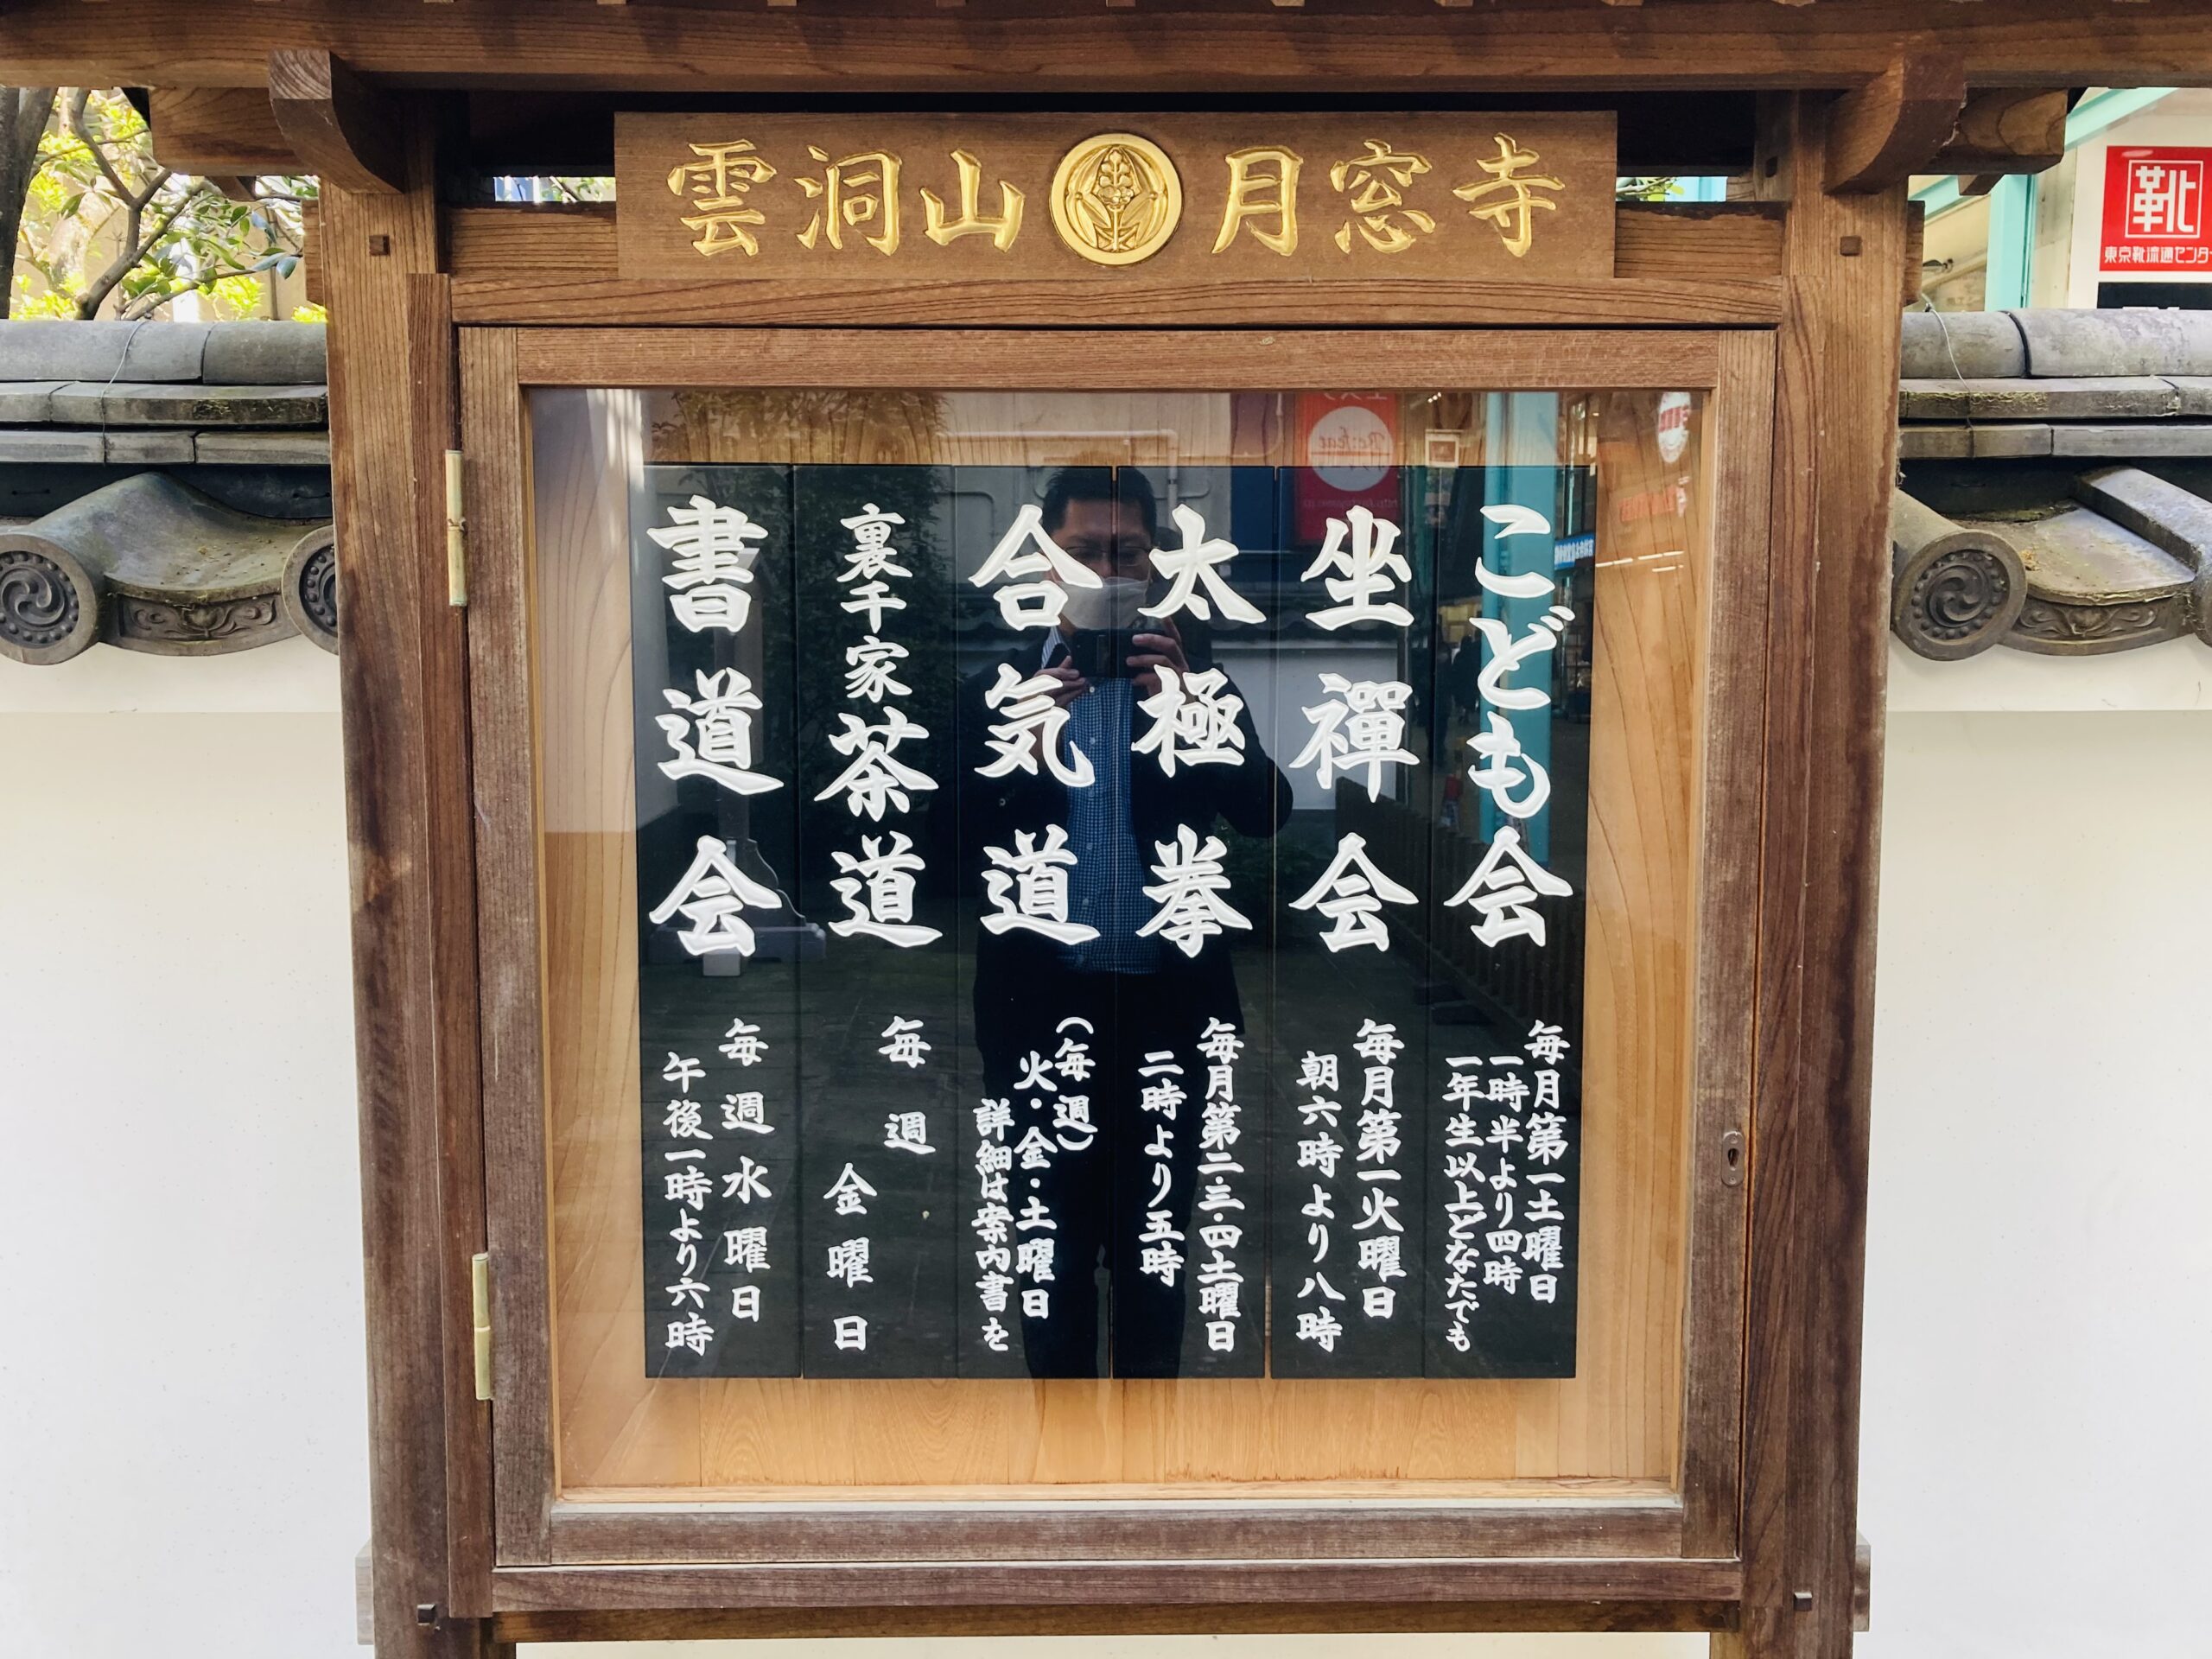 雲洞山 月窓寺
こども会
毎月第一土曜日
一時半より四時
一年生以上どなたでも
坐禪会
毎月第一火曜日
朝六時より八時
太極拳
毎月第二・三・四土曜日
二時より五時
合気道
（毎週）
火・金・土曜日
詳細は案内書を
裏千家茶道
毎週
金曜日
書道会
毎週水曜日
午後一時より六時
靴
東京靴流通センター